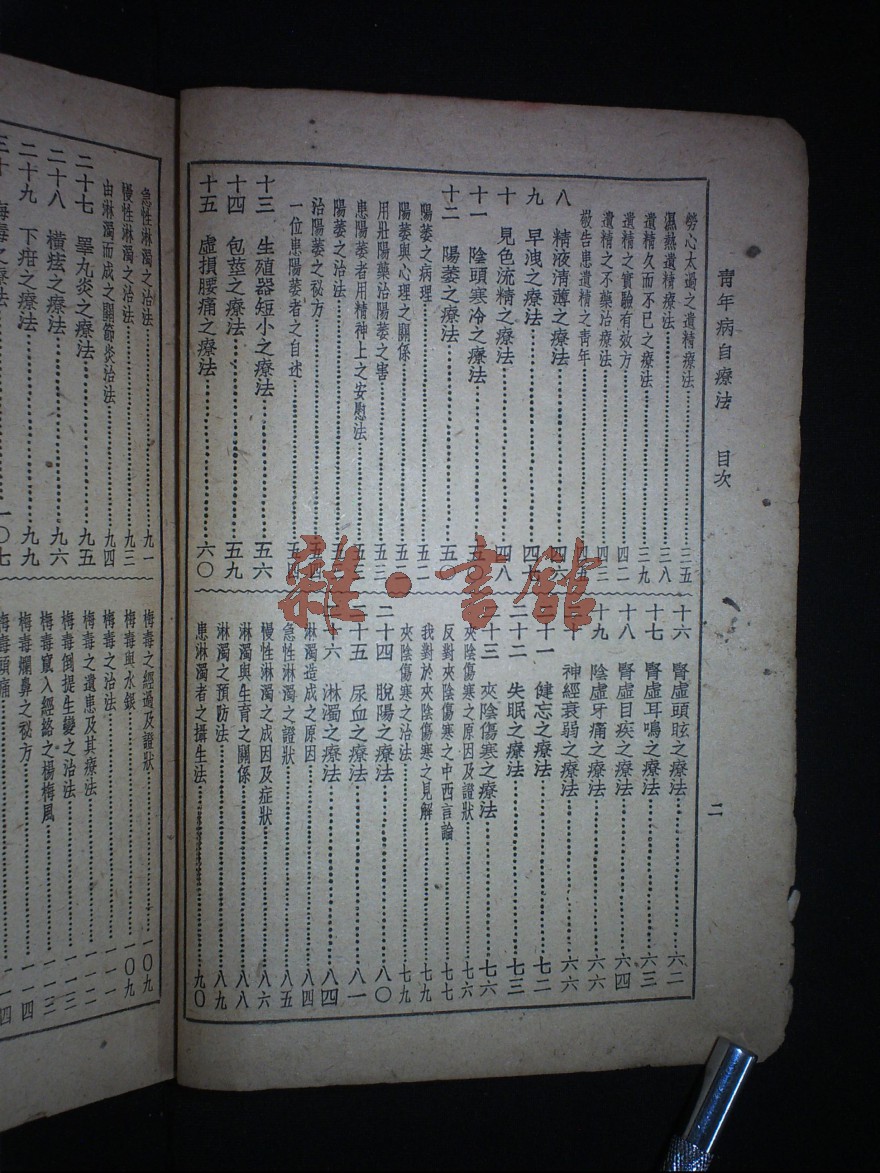 青年病自療法 目次
二
勞心太過之遺精療法 三五
濕熱遺精療法 三八
遺精久而不已之療法 三九
遺精之實驗有效方 四二
遺精之不藥治療法 四三
敬告患遺精之青年
八 精液清薄之療法 四六
九 早洩之療法
十 見色流精之療法 四八
十一 陰頭寒冷之療法 五〇
十二 陽萎之療法 五〇
陽萎之病理 五二
陽萎與心理之關係 五二
用壯陽藥治陽萎之害 五三
患陽萎者用精神上之安慰法 五三
陽萎之治法
治陽萎之秘方 五四
一位患陽萎者之自述 五四
十三 生殖器短小之療法 五六
十四 包莖之療法 五九
十五 虛損腰痛之療法 六〇
十六 腎虛頭眩之療法 六二
十七 腎虛耳鳴之療法 六三
十八 腎虛目疾之療法 六四
十九 陰虛牙痛之療法 六六
二十 神經衰弱之療法 六六
二十一 健忘之療法 七二
二十二 失眠之療法 七三
二十三 夾陰傷寒之療法 七六
夾陰傷寒之原因及證狀 七六
反對夾陰傷寒之中西言論 七七
我對於夾陰傷寒之見解 七九
夾陰傷寒之治法 七九
二十四 脫陽之療法 八〇
二十五 尿血之療法 八一
二十六 淋濁之療法 八四
淋濁造成之原因 八四
急性淋濁之證狀 八五
慢性淋濁之成因及症狀 八六
淋濁與生育之關係 八八
淋濁之預防法 八九
患淋濁者之攝生法 九〇
急性淋濁之治法 九一
慢性淋濁之治法 九三
由淋濁而成之關節炎治法 九四
二十七 睪丸炎之療法 九五
二十八 橫痃之療法 九六
二十九 下疳之療法 九九
三十 梅毒之療法 一〇七
梅毒之經過及證狀 一〇九
梅毒與水銀 一〇九
梅毒之治法
梅毒之遺患及其療法
梅毒倒提生變之治法
梅毒竄入經絡之楊梅風
梅毒爛鼻之秘方
梅毒頭痛
雜·書館